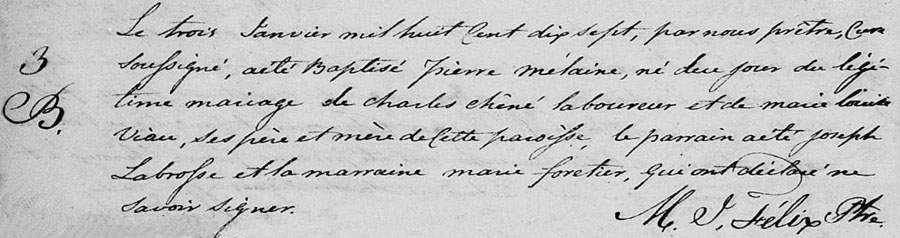 Le trois Janvier mil huit Cent dix sept, par nous prêtre, Curé
3
soussigné, aété Baptisé Pierre mélaine, né du jour du légi-
B.
time mariage de charles chêné laboureur et de marie louise
Viau, ses père et mère de Cette paroisse, le parrain aété joseph
Labrosse et la marraine marie foretier, qui ont déclaré ne
savoir signer.
M. J. Félix Ptre.